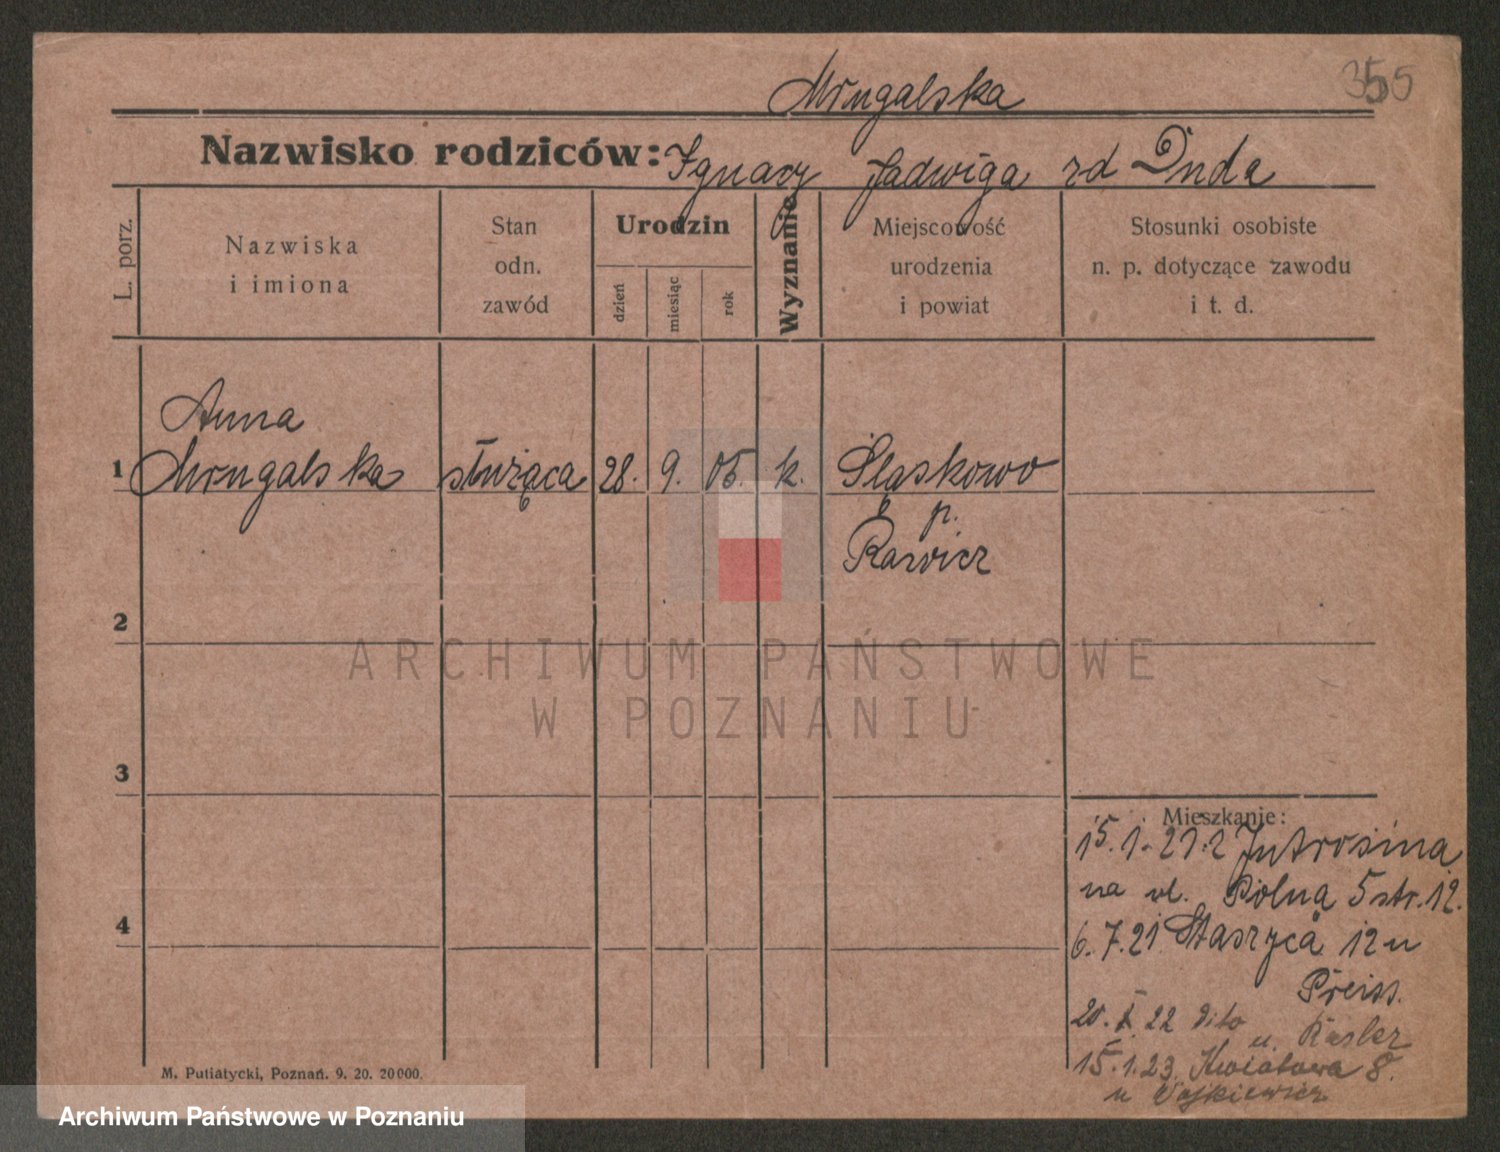 355
Mrugalska
Nazwisko rodziców: Ignacy Jadwiga zd Duda
L. porz.
Nazwiska i imiona
Stan odn. zawód
Urodzin
dzień
miesiąc
rok
Wyznanie
Miejscowość urodzenia i powiat
Stosunki osobiste n. p. dotyczące zawodu i t. d.
Anna
1 Mrugalska służąca 28. 9. 05. k. Śląskowo
p.
Rawicz
2
3
4
Mieszkanie:
15.1.21 z Jutrosina
na ul. Polną 5 str. 12.
6.7.21 Staszyca 12 u
Preiss.
20. X 22 dito
u. Kasler
15.1.23. Kwiatowa 8.
u Wojkiewicz
M. Putiatycki, Poznań. 9. 20. 20000.
ARCHIWUM PAŃSTWOWE
W POZNANIU
Archiwum Państwowe w Poznaniu